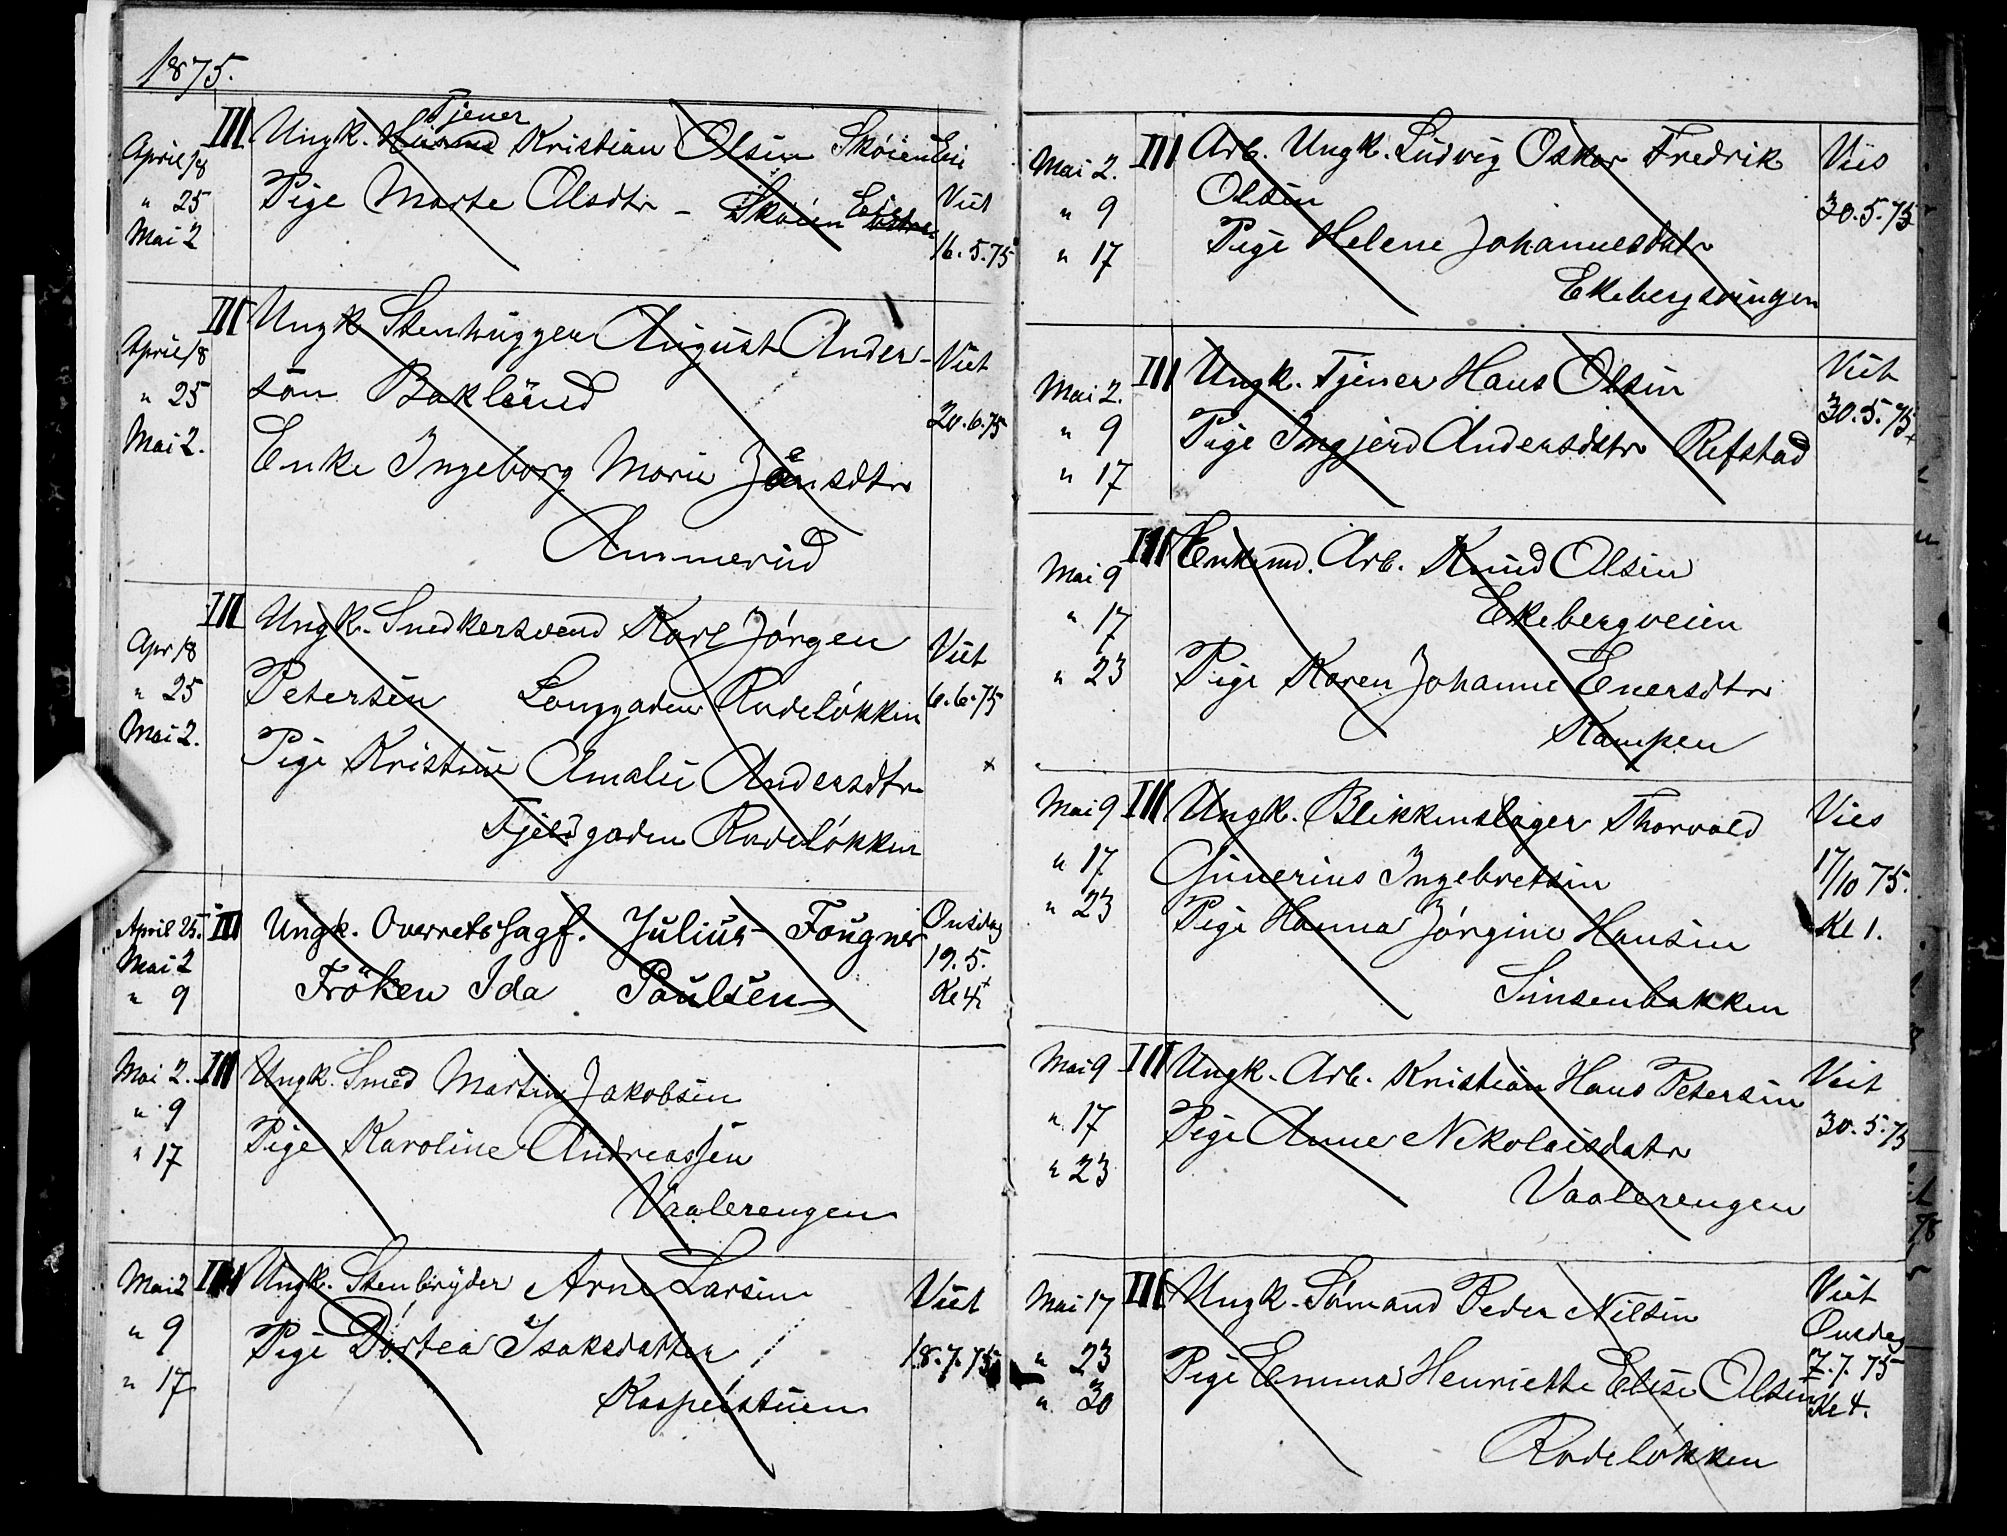 1875.
Tjener
April 18 III Ungk. Kristian Olsen Skøien Eie
" 25 Pige Marte Olsdtr - Skøien Eie Viet
Mai 2 16.5.75
April 18 III Ungk Stenhugger August Anders- Viet
" 25 søn Baklund 20.6.75
Mai 2. Enke Ingeborg Marie Jensdtr
Ammerud
Apr 18 III Ungk. Snedkersvend Karl Jørgen Viet
" 25 Petersen Langgaden Rodeløkken 6.6.75
Mai 2. Pige Kristine Amalie Andersdtr x
Fjeldgaden Rodeløkken
April 25. III Ungk. Overretssagf. Julius Fougner Onsdag
Mai 2 Fröken Ida Paulsen 19.5.
" 9 Kl 4
Mai 2. III Ungk. Smed Martin Jakobsen
" 9 Pige Karoline Andreassen
" 17 Vaalerengen
Mai 2 III Ungk. Stenbryder Arne Larsen Viet
" 9 Pige Dortea Isaksdatter 18.7.75
" 17 Kaspeistuen
Mai 2. III Arb. Ungk. Ludvig Oskar Fredrik Vies
" 9 Olsen 30.5.75
" 17 Pige Helene Johannesdatr
Ekebergsvingen
Mai 2. III Ungk. Tjener Hans Olsen Viet
" 9 Pige Ingjerd Andersdatr Refstad 30.5.75
" 17
Mai 9 III Enkemd. Arb. Knud Olsen
" 17 Ekebergveien
" 23 Pige Karen Johanne Enersdtr
Kampen
Mai 9 III Ungk. Blikkenslager Thorvald Vies
" 17 Gunerius Ingebretsen 17/10 75.
" 23 Pige Hanna Jørgine Hansen Kl 1.
Sinsenbakken
Mai 9 III Ungk. Arb. Kristian Hans Petersen Viet
" 17 Pige Anne Nikolaisdatr 30.5.75
" 23 Vaalerengen
Mai 17 III Ungk. Sømand Peder Nilsen Viet
Onsdag
" 23 Pige Emma Henriette Elise Olsen 7.7.75
" 30 Kl 4.
Rodeløkken